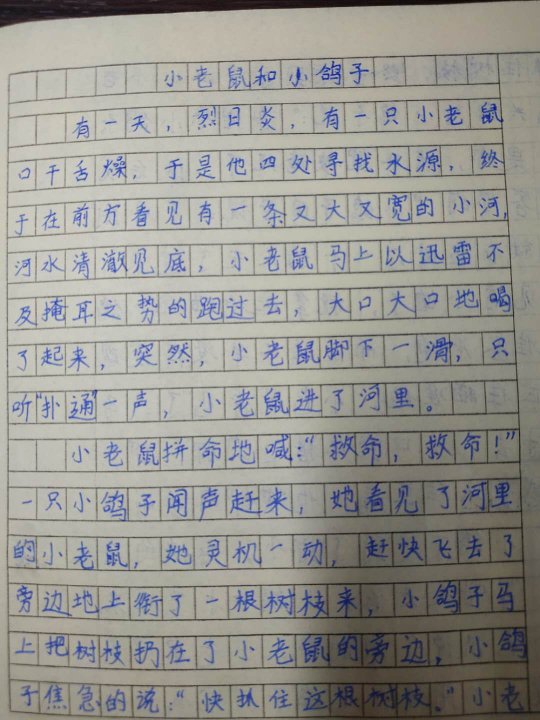 小老鼠和小鸽子
有一天，烈日炎，有一只小老鼠
口干舌燥，于是他四处寻找水源，终
于在前方看见有一条又大又宽的小河，
河水清澈见底，小老鼠马上以迅雷不
及掩耳之势的跑过去，大口大口地喝
了起来，突然，小老鼠脚下一滑，只
听“扑通”一声，小老鼠进了河里。
小老鼠拼命地喊：“救命，救命！”
一只小鸽子闻声赶来，她看见了河里
的小老鼠，她灵机一动，赶快飞去了
旁边地上衔了一根树枝来，小鸽子马
上把树枝扔在了小老鼠的旁边，小鸽
子焦急的说：“快抓住这根树枝。”小老